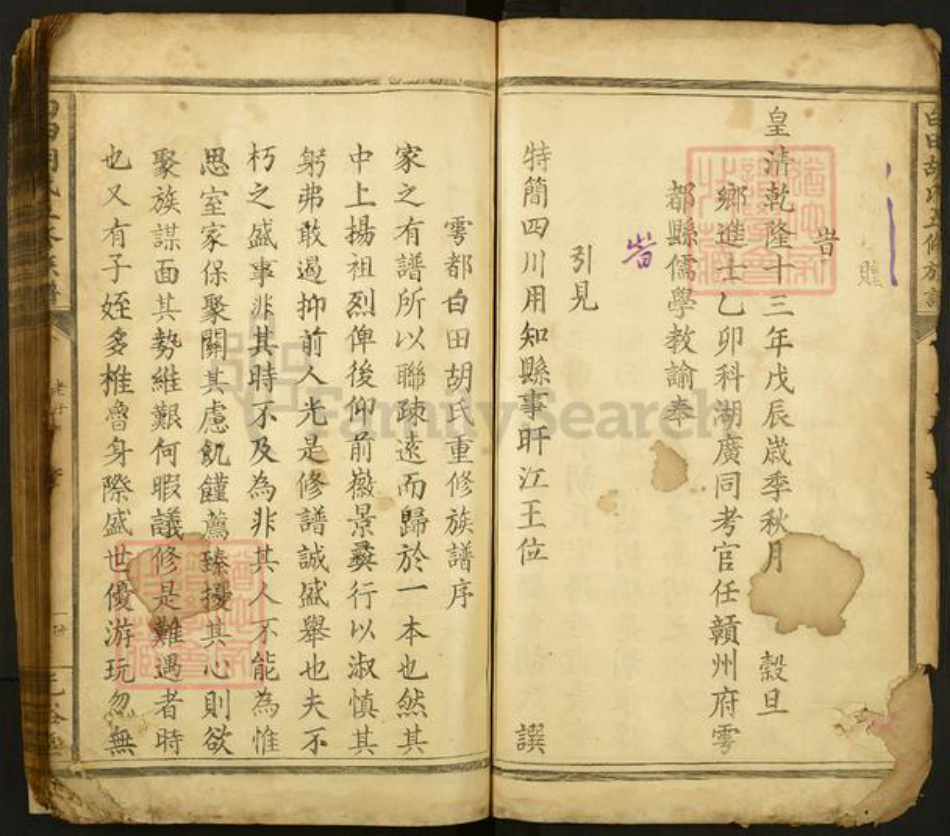 白田胡氏五修族譜
皇清乾隆十三年戊辰歲季秋月 穀旦
鄉進士乙卯科湖廣同考官任贛州府雩
都縣儒學教諭奉
旹
旹
引見
特簡四川用知縣事旴江王位 譔
雩都白田胡氏重修族譜序
家之有譜所以聯疎遠而歸於一本也然其
中上揚祖烈俾後仰前徽景彝行以淑慎其
躬弗敢遏抑前人光是修譜誠盛舉也夫不
朽之盛事非其時不及為非其人不能為惟
思室家保聚關其慮飢饉薦臻擾其心則欲
聚族謀面其勢維艱何暇議修是難遇者時
也又有子姪多椎魯身際盛世優游玩忽無
FamilySearch